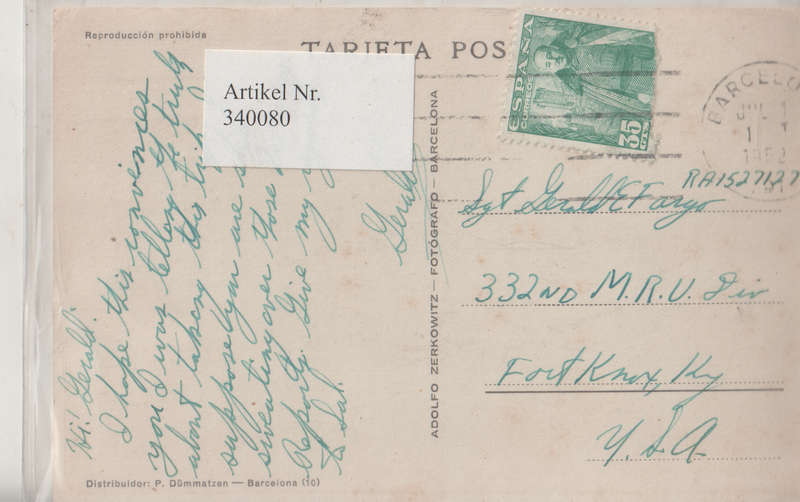 Reproducción prohibida
TARJETA POS
Artikel Nr.
340080
ESPAÑA
CORREOS
35
CTS
BARCELO
JUL 1
1952
Hi! Gerald:
I hope this convinces
you I was telling the truth
about taking this tri
suppose you are s
sweating over those
Reports. Give my
to Sal.
Gerald
ADOLFO ZERKOWITZ — FOTÓGRAFO BARCELONA
RA1527127
Sgt Gerald E Fargo
332ND M.R.U. Div
Fort Knox, Ky
U.S.A
Distribuidor: P. Dümmatzen — Barcelona (10)